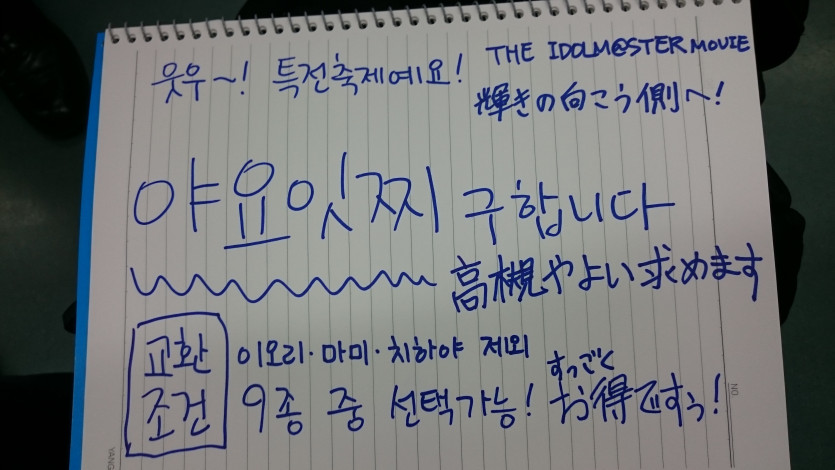 웃우~! 특전축제예요! THE IDOLM@STER MOVIE
輝きの向こう側へ!
야요잇찌 구합니다
高槻やよい求めます
교환 조건
이오리·마미·치하야 제외
9종 중 선택가능! すっごくお得ですぅ!
NO
YANG